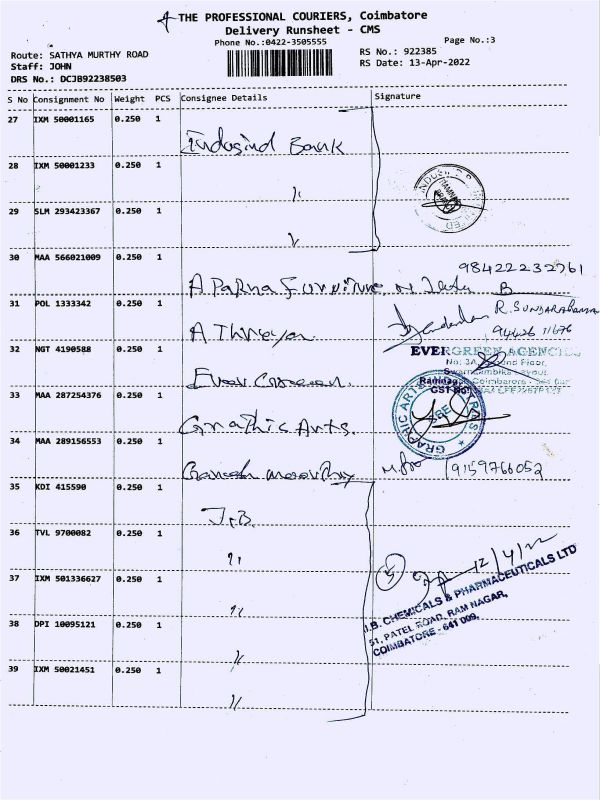 THE PROFESSIONAL COURIERS, Coimbatore
Delivery Runsheet - CMS
Phone No.:0422-3505555
Page No.:3
Route: SATHYA MURTHY ROAD
RS No.: 922385
Staff: JOHN
RS Date: 13-Apr-2022
DRS No.: DCJB92238503
S No Consignment No Weight PCS Consignee Details Signature
27 IXM 50001165 0.250 1
Indusind Bank
28 IXM 50001233 0.250 1
〃
29 SLM 293423367 0.250 1
〃
30 MAA 566021009 0.250 1
Aparna Furniture
31 POL 1333342 0.250 1
R. SUNDARARAMAN
Athreya
32 NGT 4190588 0.250 1
EVERGREEN AGENCIES
Ever Green
33 MAA 287254376 0.250 1
GRAPHIC ARTS
Graphic Arts
34 MAA 289156553 0.250 1
Ganesh Moorthy 9159766052
35 KDI 415590 0.250 1
J.B.
36 TVL 9700082 0.250 1
〃
12/4/22
37 IXM 501336627 0.250 1
〃
J.B. CHEMICALS & PHARMACEUTICALS LTD
51, PATEL ROAD, RAM NAGAR,
COIMBATORE - 641 009.
5
38 DPI 10095121 0.250 1
〃
39 IXM 50021451 0.250 1
〃